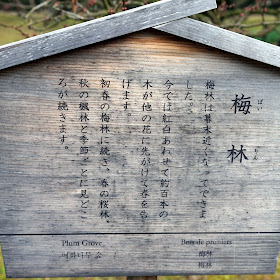 梅林
ばい りん
梅林は幕末近くなってできま
した。
今では紅白あわせて約百本の
木が他の花に先がけて春を告
げます。
初春の梅林に続き、春の桜林、
秋の楓林と季節ごとに見どこ
ろが続きます。
Plum Grove
매화나무 숲
Bois de pruniers
梅林
梅林